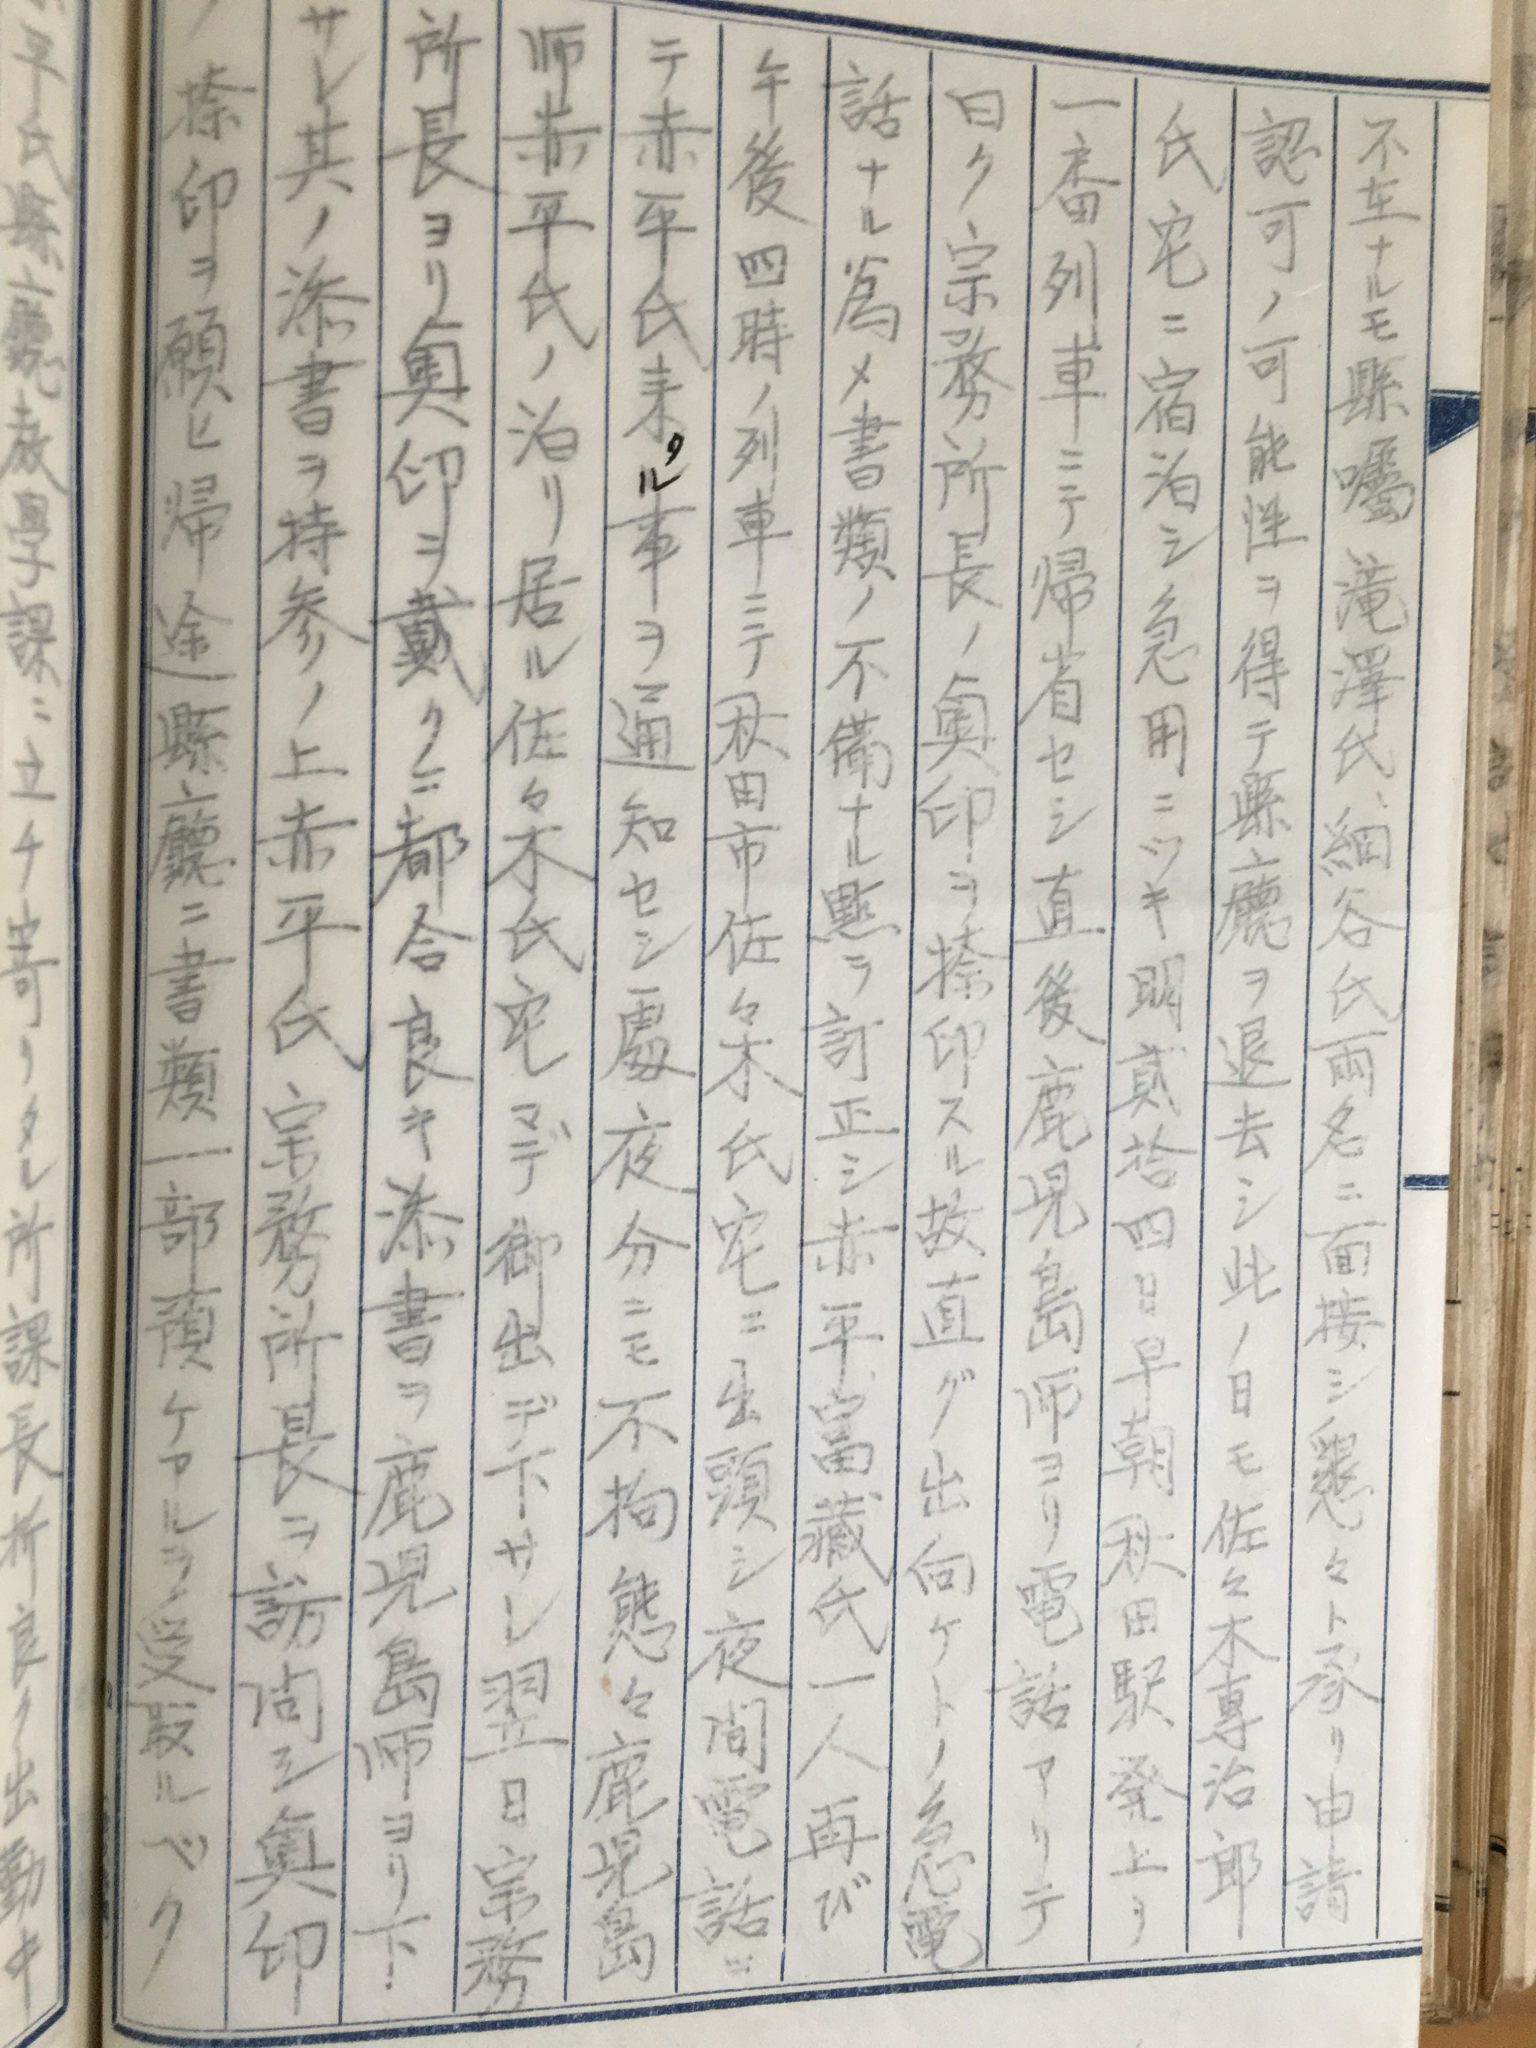 不在ナルモ縣囑滝澤氏、細谷氏両名ニ面接シ懇々ト承リ申請
認可ノ可能性ヲ得テ縣廳ヲ退去シ此ノ日モ佐々木専治郎
氏宅ニ宿泊シ急用ニツキ明貳拾四日早朝秋田駅発上リ
一番列車ニテ帰省セシ直後鹿児島师ヨリ電話アリテ
曰ク宗務所長ノ奥印ヲ捺印スル故直グ出向ケトノ急電
話ナル為メ書類ノ不備ナル點ヲ訂正シ赤平富藏氏一人再び
午後四時ノ列車ニテ秋田市佐々木氏宅ニ出頭シ夜間電話ニ
テ赤平氏来タル事ヲ通知セシ處夜分ニモ不拘態々鹿児島
师赤平氏ノ泊リ居ル佐々木氏宅マデ御出デ下サレ翌日宗務
所長ヨリ奥印ヲ戴クニ都合良キ添書ヲ鹿児島师ヨリ下
サレ其ノ添書ヲ持参ノ上赤平氏宗務所長ヲ訪問シ奥印
ノ捺印ヲ願ヒ帰途縣廳ニ書類一部預ケアルヲ受取ルベク
平氏縣廳教学課ニ立チ寄リタル所課長折良ク出勤中